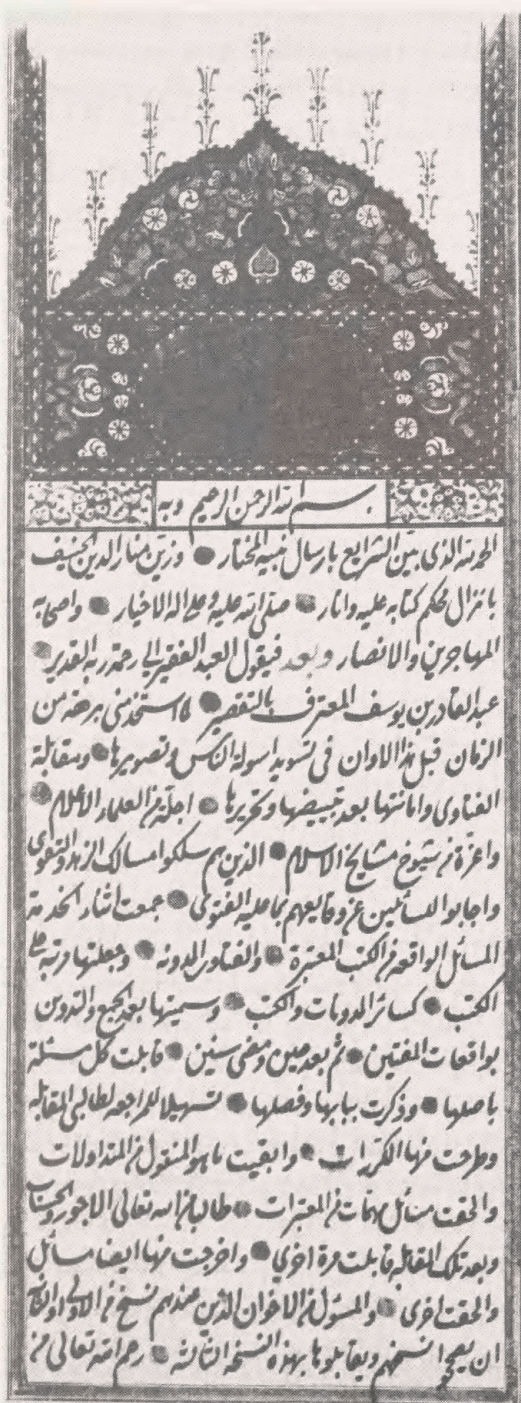 بسم الله الرحمن الرحيم وبه
الحمد لله الذى بين الشرايع بارسال نبيه المختار وزين منار الدين الحنيف
بانزال محكم كتابه عليه وانار صلى الله عليه وعلى اله الاخيار واصحابه
المهاجرين والانصار وبعد فيقول العبد الفقير الى رحمة ربه القدير
عبد القادر بن يوسف المعترف بالتقصير لما استخدمنى برهة من
الزمان قبل هذا الاوان فى تسويد اسولة الناس وتصويرها ومقابلة
الفتاوى وامانتها بعد تبييضها وتحريرها اجلة من العلماء الاعلام
واعزة من شيوخ مشايخ الاسلام الذين هم سلكوا مسالك الزهد والتقوى
واجابوا للسائلين عن وقايعهم بما عليه الفتوى جمعت اثناء الخدمة
المسائل الواقعة من الكتب المعتبرة والفتاوى المدونه وجعلتها مرتبة على
الكتب كسائر المدونات والكتب وسميتها بعد الجمع والتدوين
بواقعات المفتين ثم بعد حين ومضى سنين قابلت كل مسئلة
باصلها وذكرت ببابها وفصلها تسهيلا للمراجعه لطالبى المقابله
وطرحت منها المكررات وابقيت ما هو المنقول من المتداولات
والحقت مسائل مهمات من المعتبرات طالبا من الله تعالى الاجور والحسنات
وبعد تلك المقابلة قابلت مرة اخرى واخرجت منها ايضا مسائل
والحقت اخرى والمسئول من الاخوان الذين عندهم نسخ من الاولى او الثانية
ان يصححوا نسخهم ويقابلوها بهذه النسخة الثالثة رحم الله تعالى من